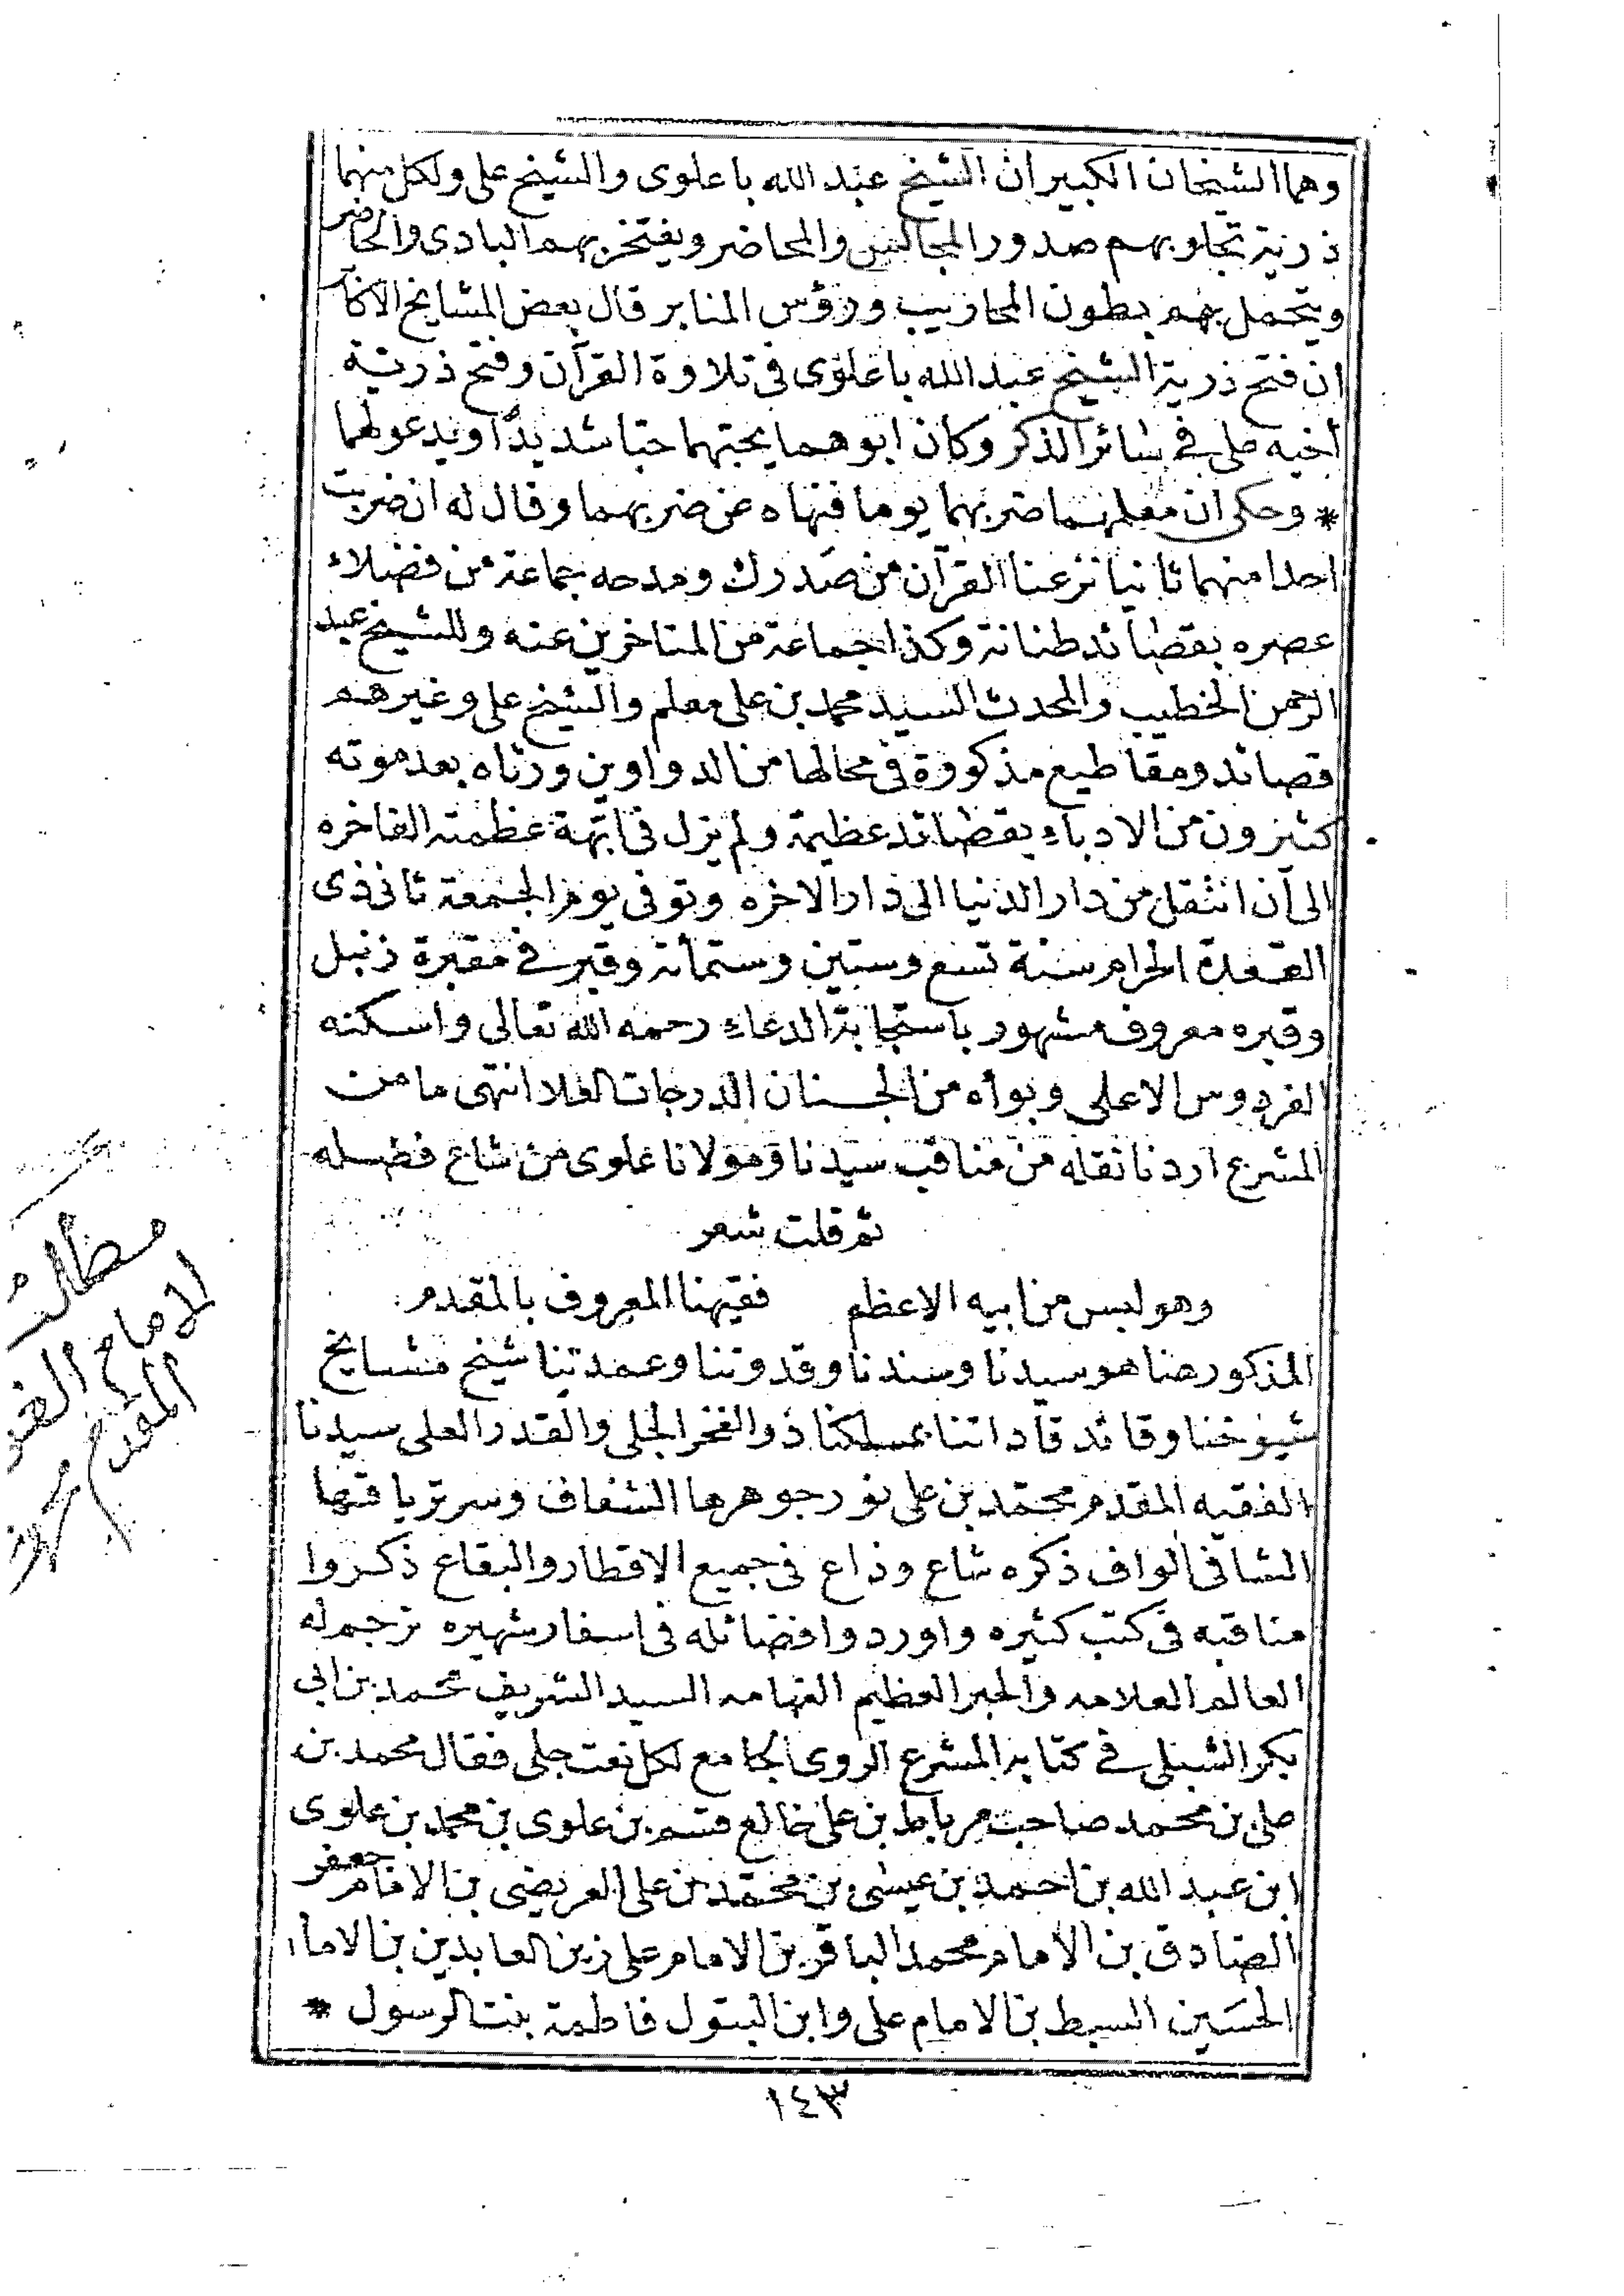 وهما الشيخان الكبيران الشيخ عبد الله باعلوى والشيخ على ولكل منهما
ذرية تجلو بهم صدور المجالس والمحاضر ويفتخر بهم البادى والحاضر
ويتجمل بهم بطون المحاريب ورؤس المنابر قال بعض المشايخ الاكابر
ان فتح ذرية الشيخ عبد الله باعلوى فى تلاوة القرآن وفتح ذرية
أخيه على في سائر الذكر وكان ابوهما يحبهما حبا شديدًا ويدعولهما
* وحكى ان معلمهما ضربهما يوما فنهاه عن ضربهما وقال له ان ضربت
احدا منهما ثانيا نزعنا القرآن من صدرك ومدحه جماعة من فضلاء
عصره بقصائد طنانة وكذا جماعة من المتاخرين عنه وللشيخ عبد
الرحمن الخطيب والمحدث السيد محمد بن على معلم والشيخ على وغيرهم
قصائد ومقاطيع مذكورة فى محالها من الدواوين ورثاه بعد موته
كثيرون من الادباء بقصائد عظيمة ولم يزل فى ابهة عظمته الفاخره
الى أن انتقل من دار الدنيا الى دار الاخره وتوفى يوم الجمعة ثانى ذى
القعدة الحرام سنة تسع وستين وستمائة وقبر في مقبرة زنبل
وقبره معروف مشهور باستجابة الدعاء رحمه الله تعالى واسكنه
الفردوس الاعلى وبوأه من الجنان الدرجات العلا انتهى ما من
المشرع اردنا نقله من مناقب سيدنا ومولانا علوى من شاع فضله
ثم قلت شعر
وهو لبس من ابيه الاعظم فقيهنا المعروف بالمقدم
المذكور هنا هو سيدنا وسندنا وقدوتنا وعمدتنا شيخ مشايخ
شيوخنا وقائد قاداتنا بمسلكنا ذو الفخر الجلى والقدر العلى سيدنا
الفقيه المقدم محمد بن على نور جوهرها الشفاف وسر ترياقها
الشافى الواف ذكره شاع وذاع فى جميع الاقطار والبقاع ذكروا
مناقبه فى كتب كثيره واوردوا فضائله فى اسفار شهيره ترجم له
العالم العلامه والحبر العظيم الفهامه السيد الشريف محمد بن ابى
بكر الشبلى في كتابه المشرع الروى الجامع لكل نعت جلى فقال محمد بن
على بن محمد صاحب مرباط بن على خالع قسم بن علوى بن محمد بن علوى
ابن عبد الله بن احمد بن عيسى بن محمد بن على العريضى بن الامام جعفر
الصادق بن الامام محمد الباقر بن الامام على زين العابدين بن الاما
الحسَين السبط بن الامام على وابن البتول فاطمة بنت الرسول *
١٤٣
للامام
المقدم